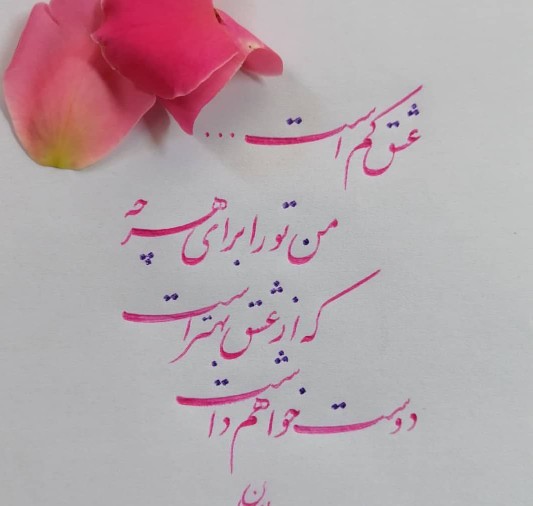 عشق کم است ...
من تو را برای هر چه
که از عشق بهتر است
دوست خواهم داشت